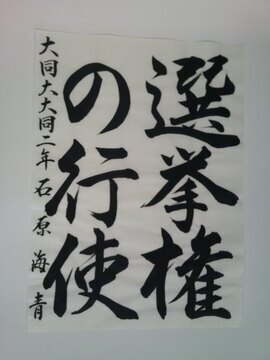 選挙権
の行使
大同大大同二年石原海青